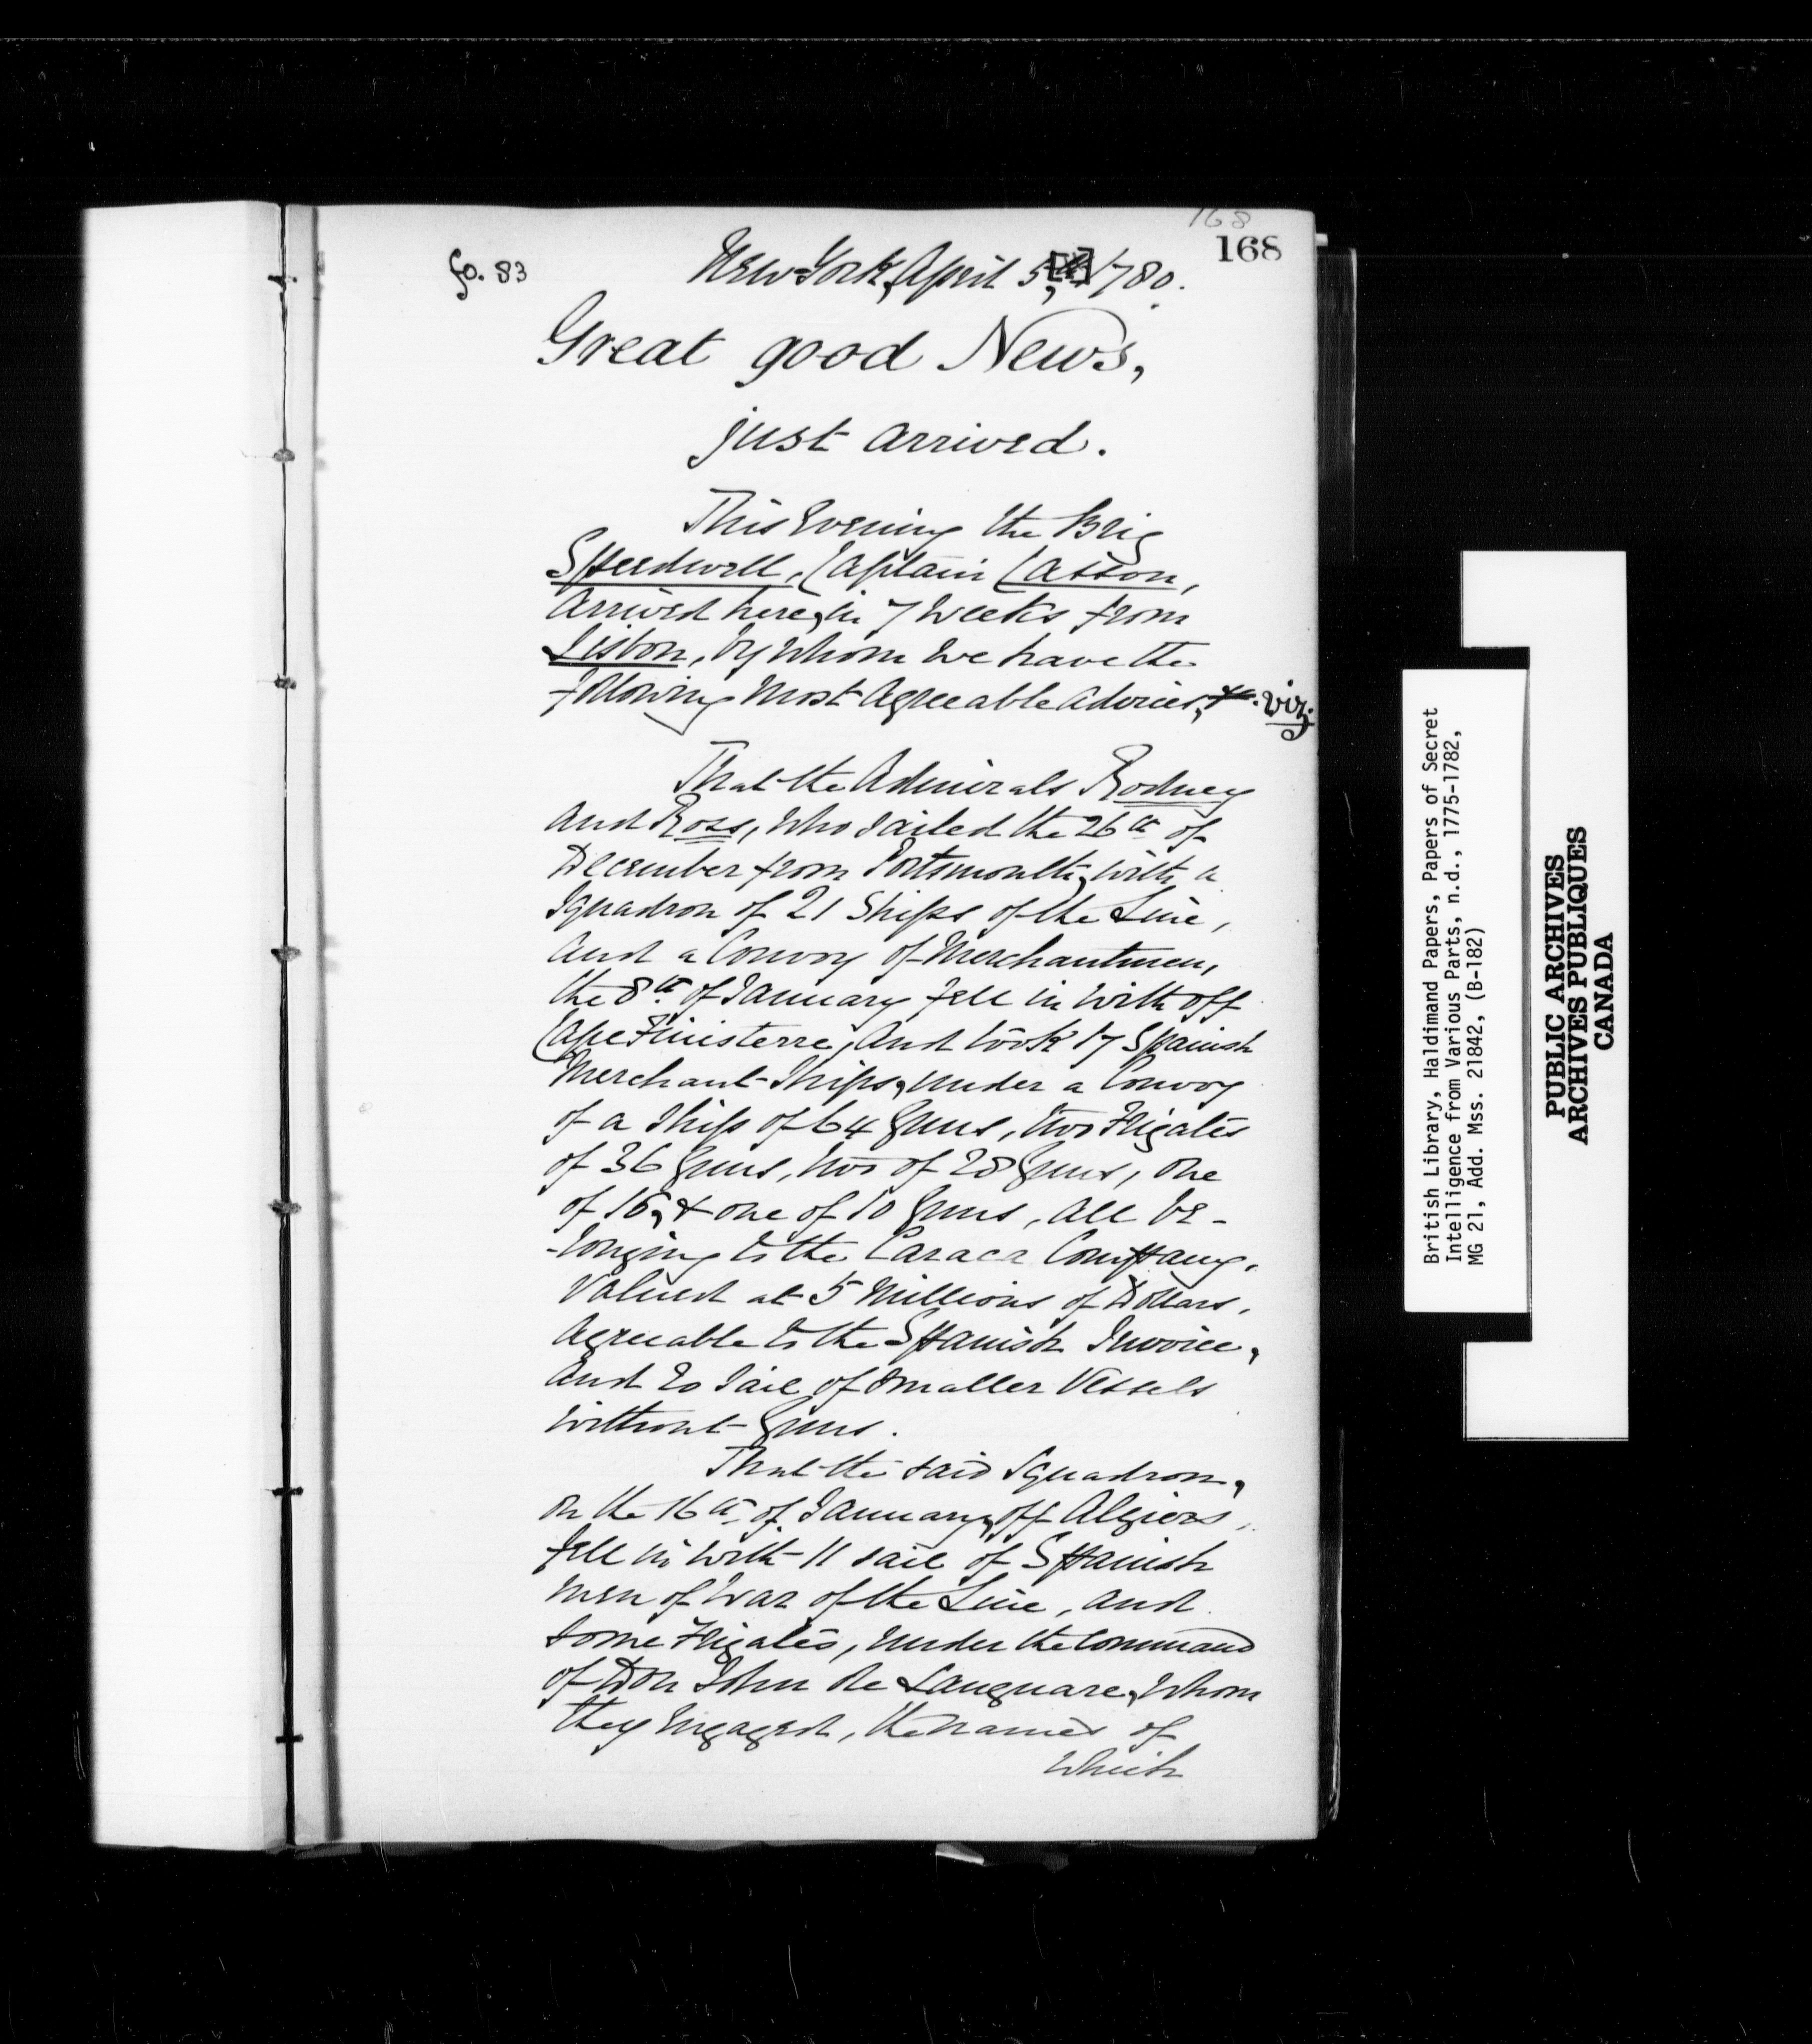 168
168
fo. 83
New York, April 5, 1780.
Great good News,
just arrived.
This Evening the Brig
Speedwell, Captain Casson,
Arrived here, in 7 Weeks from
Lisbon, by Whom We have the
following Most Agreeable Advices, viz.
That the Admirals Rodney
And Ross, Who Sailed the 26th of
December from Portsmouth, with a
Squadron of 21 Ships of the Line,
And a Convoy of Merchantmen,
the 8th of January fell in With off
Cape Finisterre, And took 17 Spanish
Merchant Ships, under a Convoy
of a Ship of 64 Guns, two Frigates
of 36 Guns, two of 28 Guns, One
of 16, & one of 10 Guns, All be-
-longing to the Caraca Company,
Valued at 5 Millions of Dollars,
Agreeable to the Spanish Invoice,
And 20 Sail of Smaller Vessels
Without Guns.
That the said Squadron,
On the 16th of January, off Algiers,
fell in With 11 sail of Spanish
Men of War of the Line, And
some Frigates, Under the Command
of Don John de Languare, Whom
they Engaged, the names of
Which
British Library, Haldimand Papers, Papers of Secret
Intelligence from Various Parts, n.d., 1775-1782,
MG 21, Add. Mss. 21842, (B-182)
PUBLIC ARCHIVES
ARCHIVES PUBLIQUES
CANADA